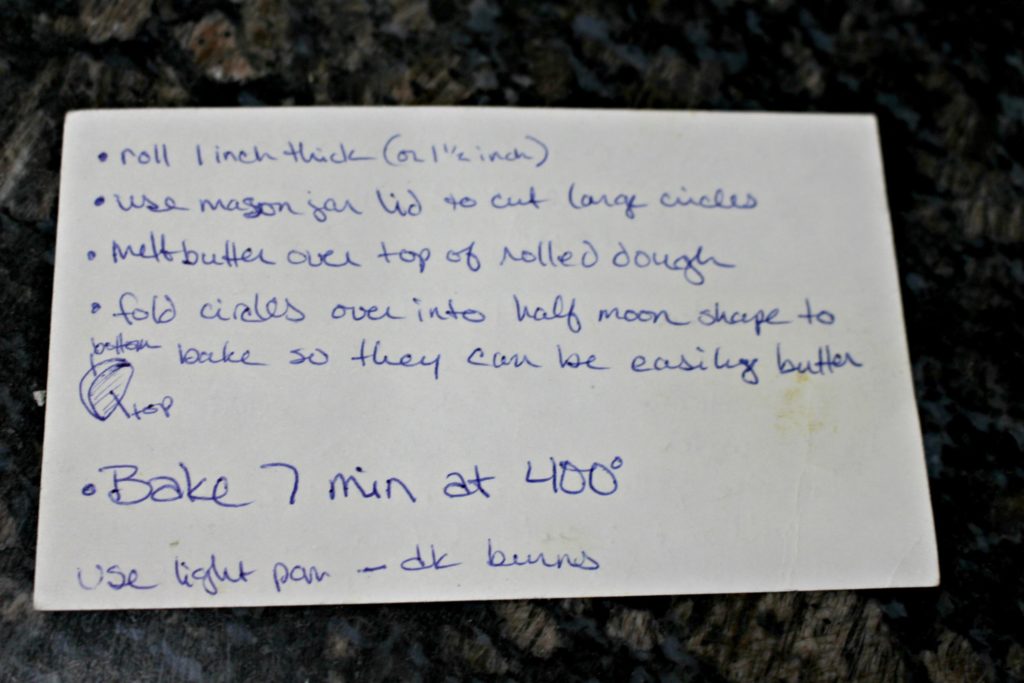 • roll 1 inch thick (or 1 1/2 inch)
• use mason jar lid to cut large circles
• melt butter over top of rolled dough
• fold circles over into half moon shape to
bottom bake so they can be easily butter
top
• Bake 7 min at 400°
use light pan – dk burns